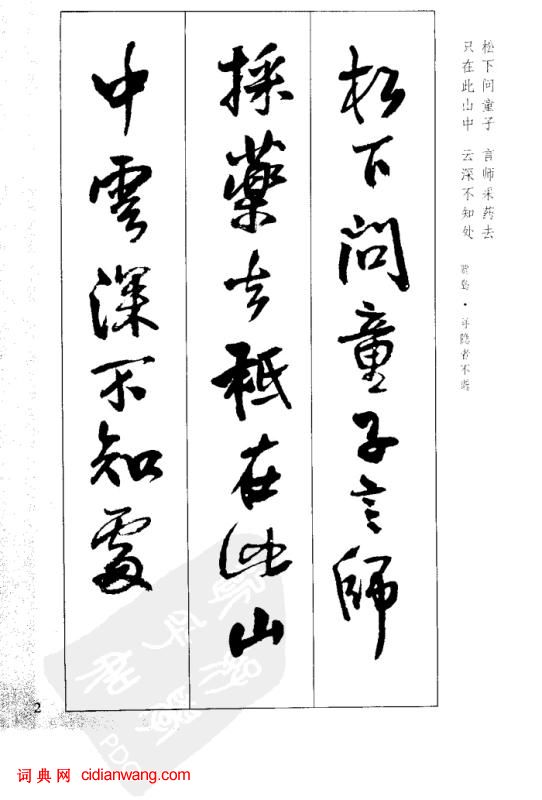 松下问童子 言师采药去
只在此山中 云深不知处
贾岛·寻隐者不遇
松下問童子言師
採藥去秖在此山
中雲深不知處
2
词典网 cidianwang.com